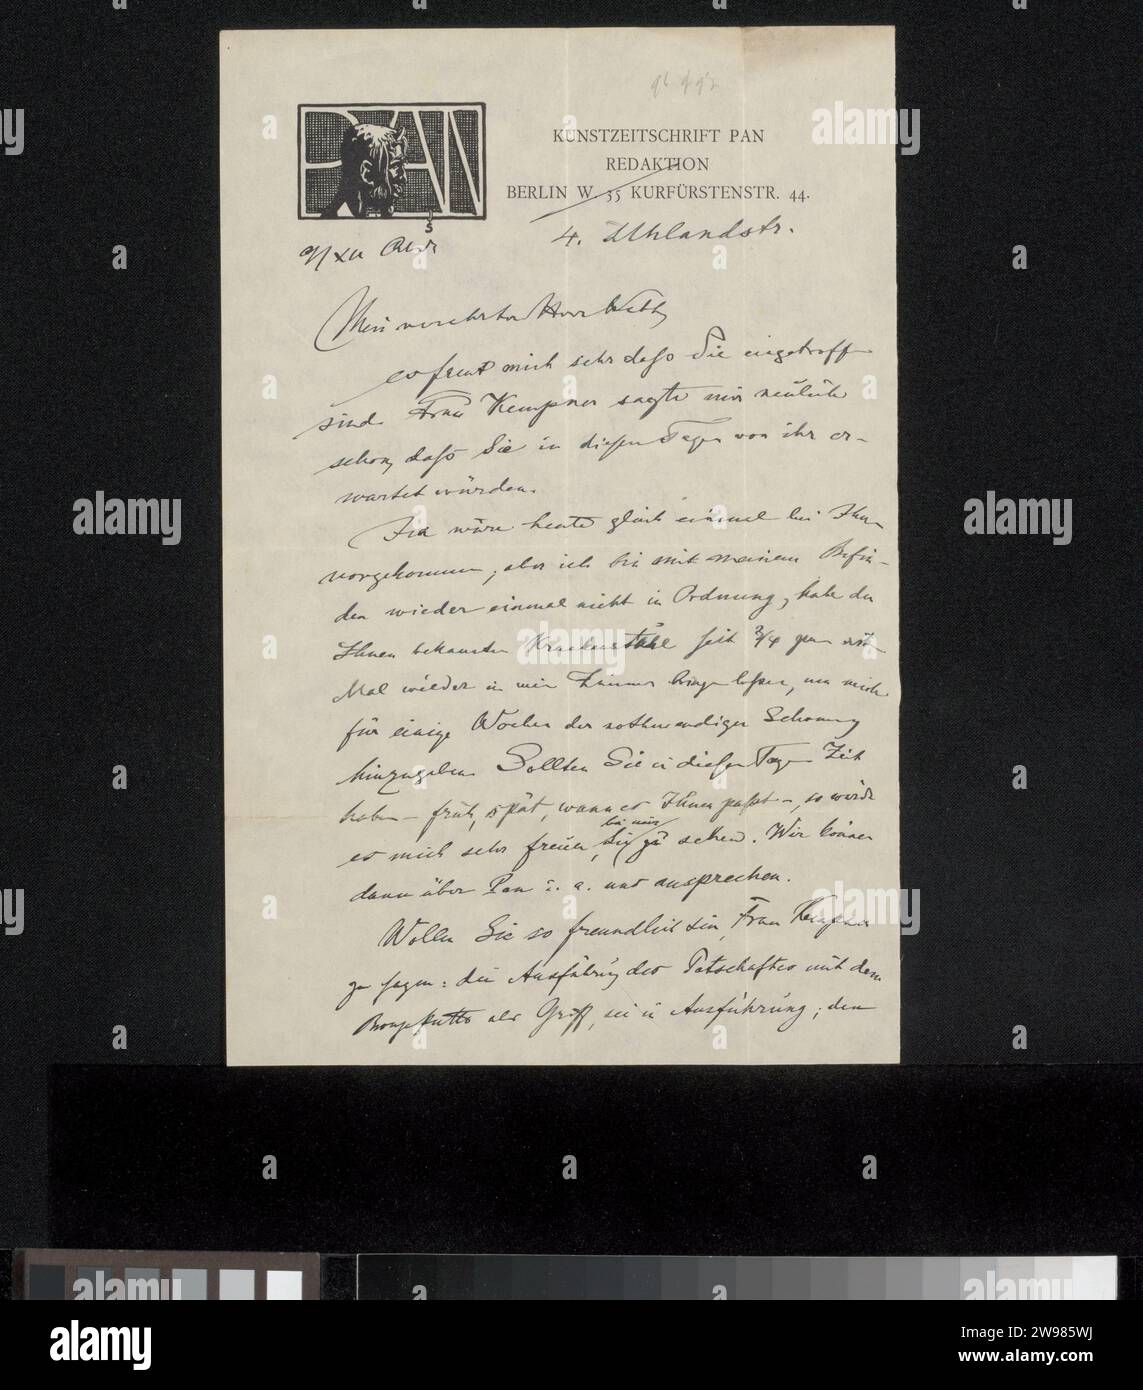 PAN
KUNSTZEITSCHRIFT PAN
REDAKTION
BERLIN W 35 KURFÜRSTENSTR. 44.
4. Uhlandstr.
9/XII
Mein verehrter Herr
es freut mich sehr daß Sie eingetroffen
sind. Frau Kempner sagte mir neulich
schon, daß Sie in diesen Tagen von ihr er-
wartet würden.
Ich wäre heute gleich einmal bei Ihnen
vorgekommen, aber ich bin mit meinem Befin-
den wieder einmal nicht in Ordnung, habe den
Ihnen bekannten Krankenstuhl seit
Mal wieder in mein Zimmer bringen lassen, um mich
für einige Wochen der nothwendigen Schonung
hinzugeben. Sollten Sie in diesen Tagen Zeit
haben – früh, spät, wann es Ihnen paßt –, so würde
es mich sehr freuen, Sie bei mir zu sehen. Wir können
dann über Pan u. a. uns aussprechen.
Wollen Sie so freundlich sein, Frau Kempner
zu sagen: die Ausführung des Petschaftes mit dem
als Griff, sei in Ausführung; den
alamy
Image ID: 2W985WJ
www.alamy.com